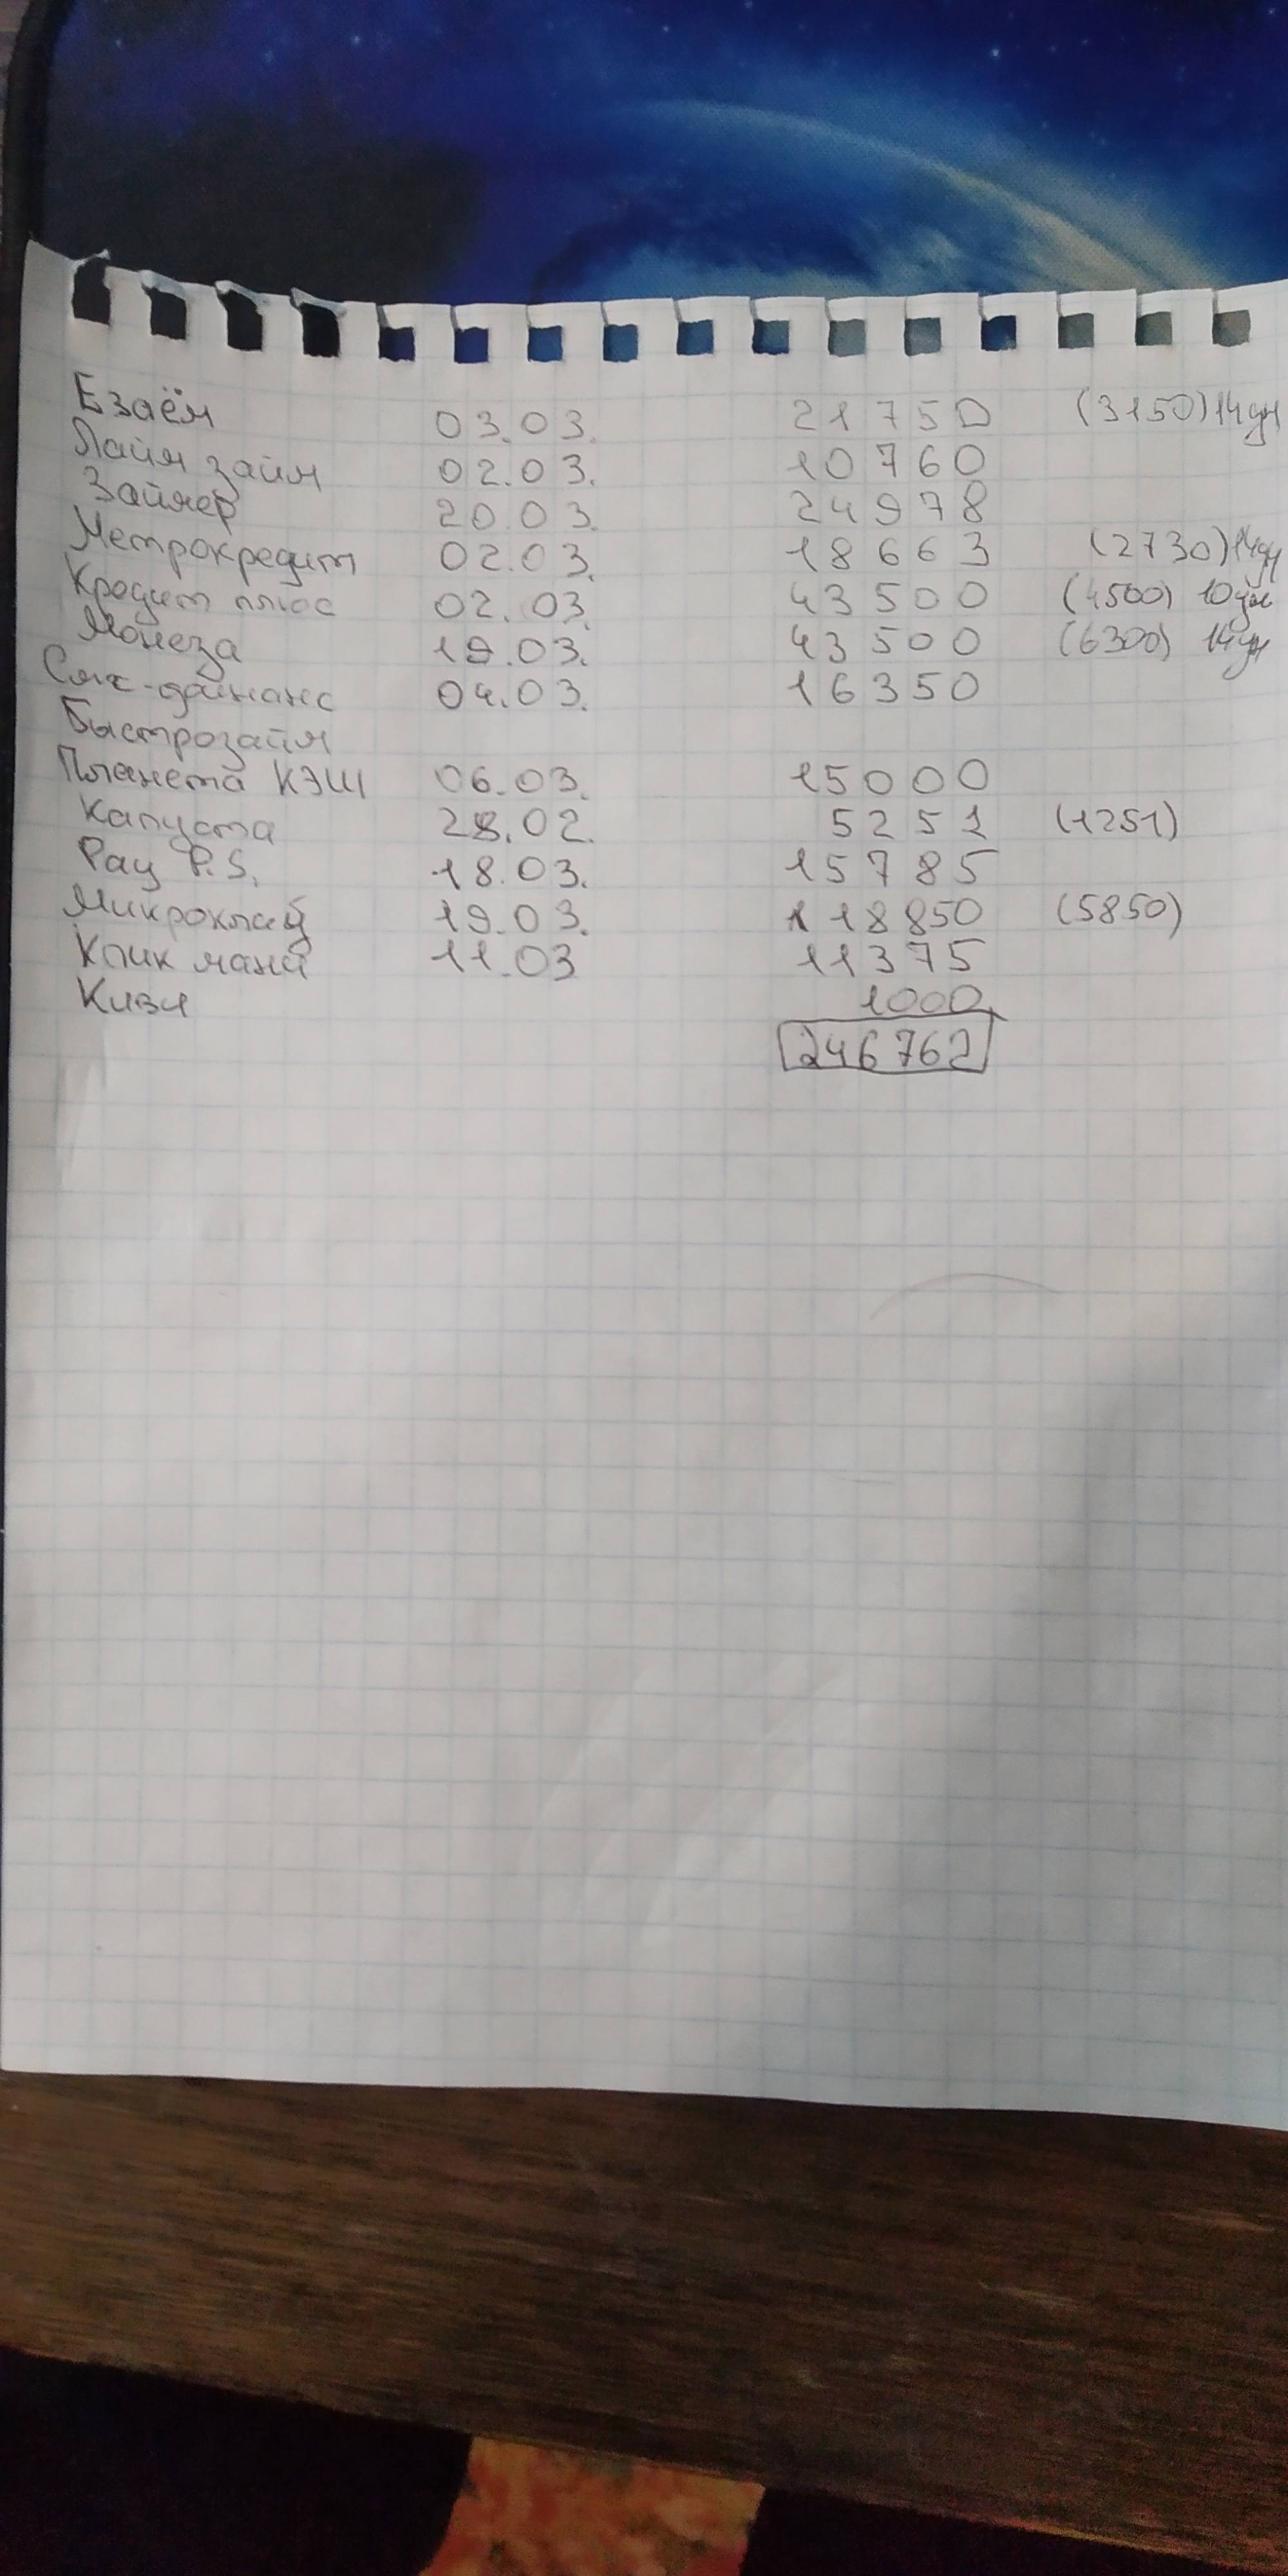 Езаём 03.03. 21750 (3150) 14дн
Лайм займ 02.03. 10760
Займер 20.03. 24978
Метрокредит 02.03. 18663 (2730) 14дн
Кредит плюс 02.03. 43500 (4500) 10дн
Монеза 19.03. 43500 (6300) 14дн
Смс-финанс 04.03. 16350
Быстрозайм
Планета КЭШ 06.03. 15000
Капуста 28.02. 5251 (1251)
Pay P.S. 18.03. 15785
Микроклад 19.03. 18850 (5850)
Клик мани 11.03 11375
Киви 1000
246762